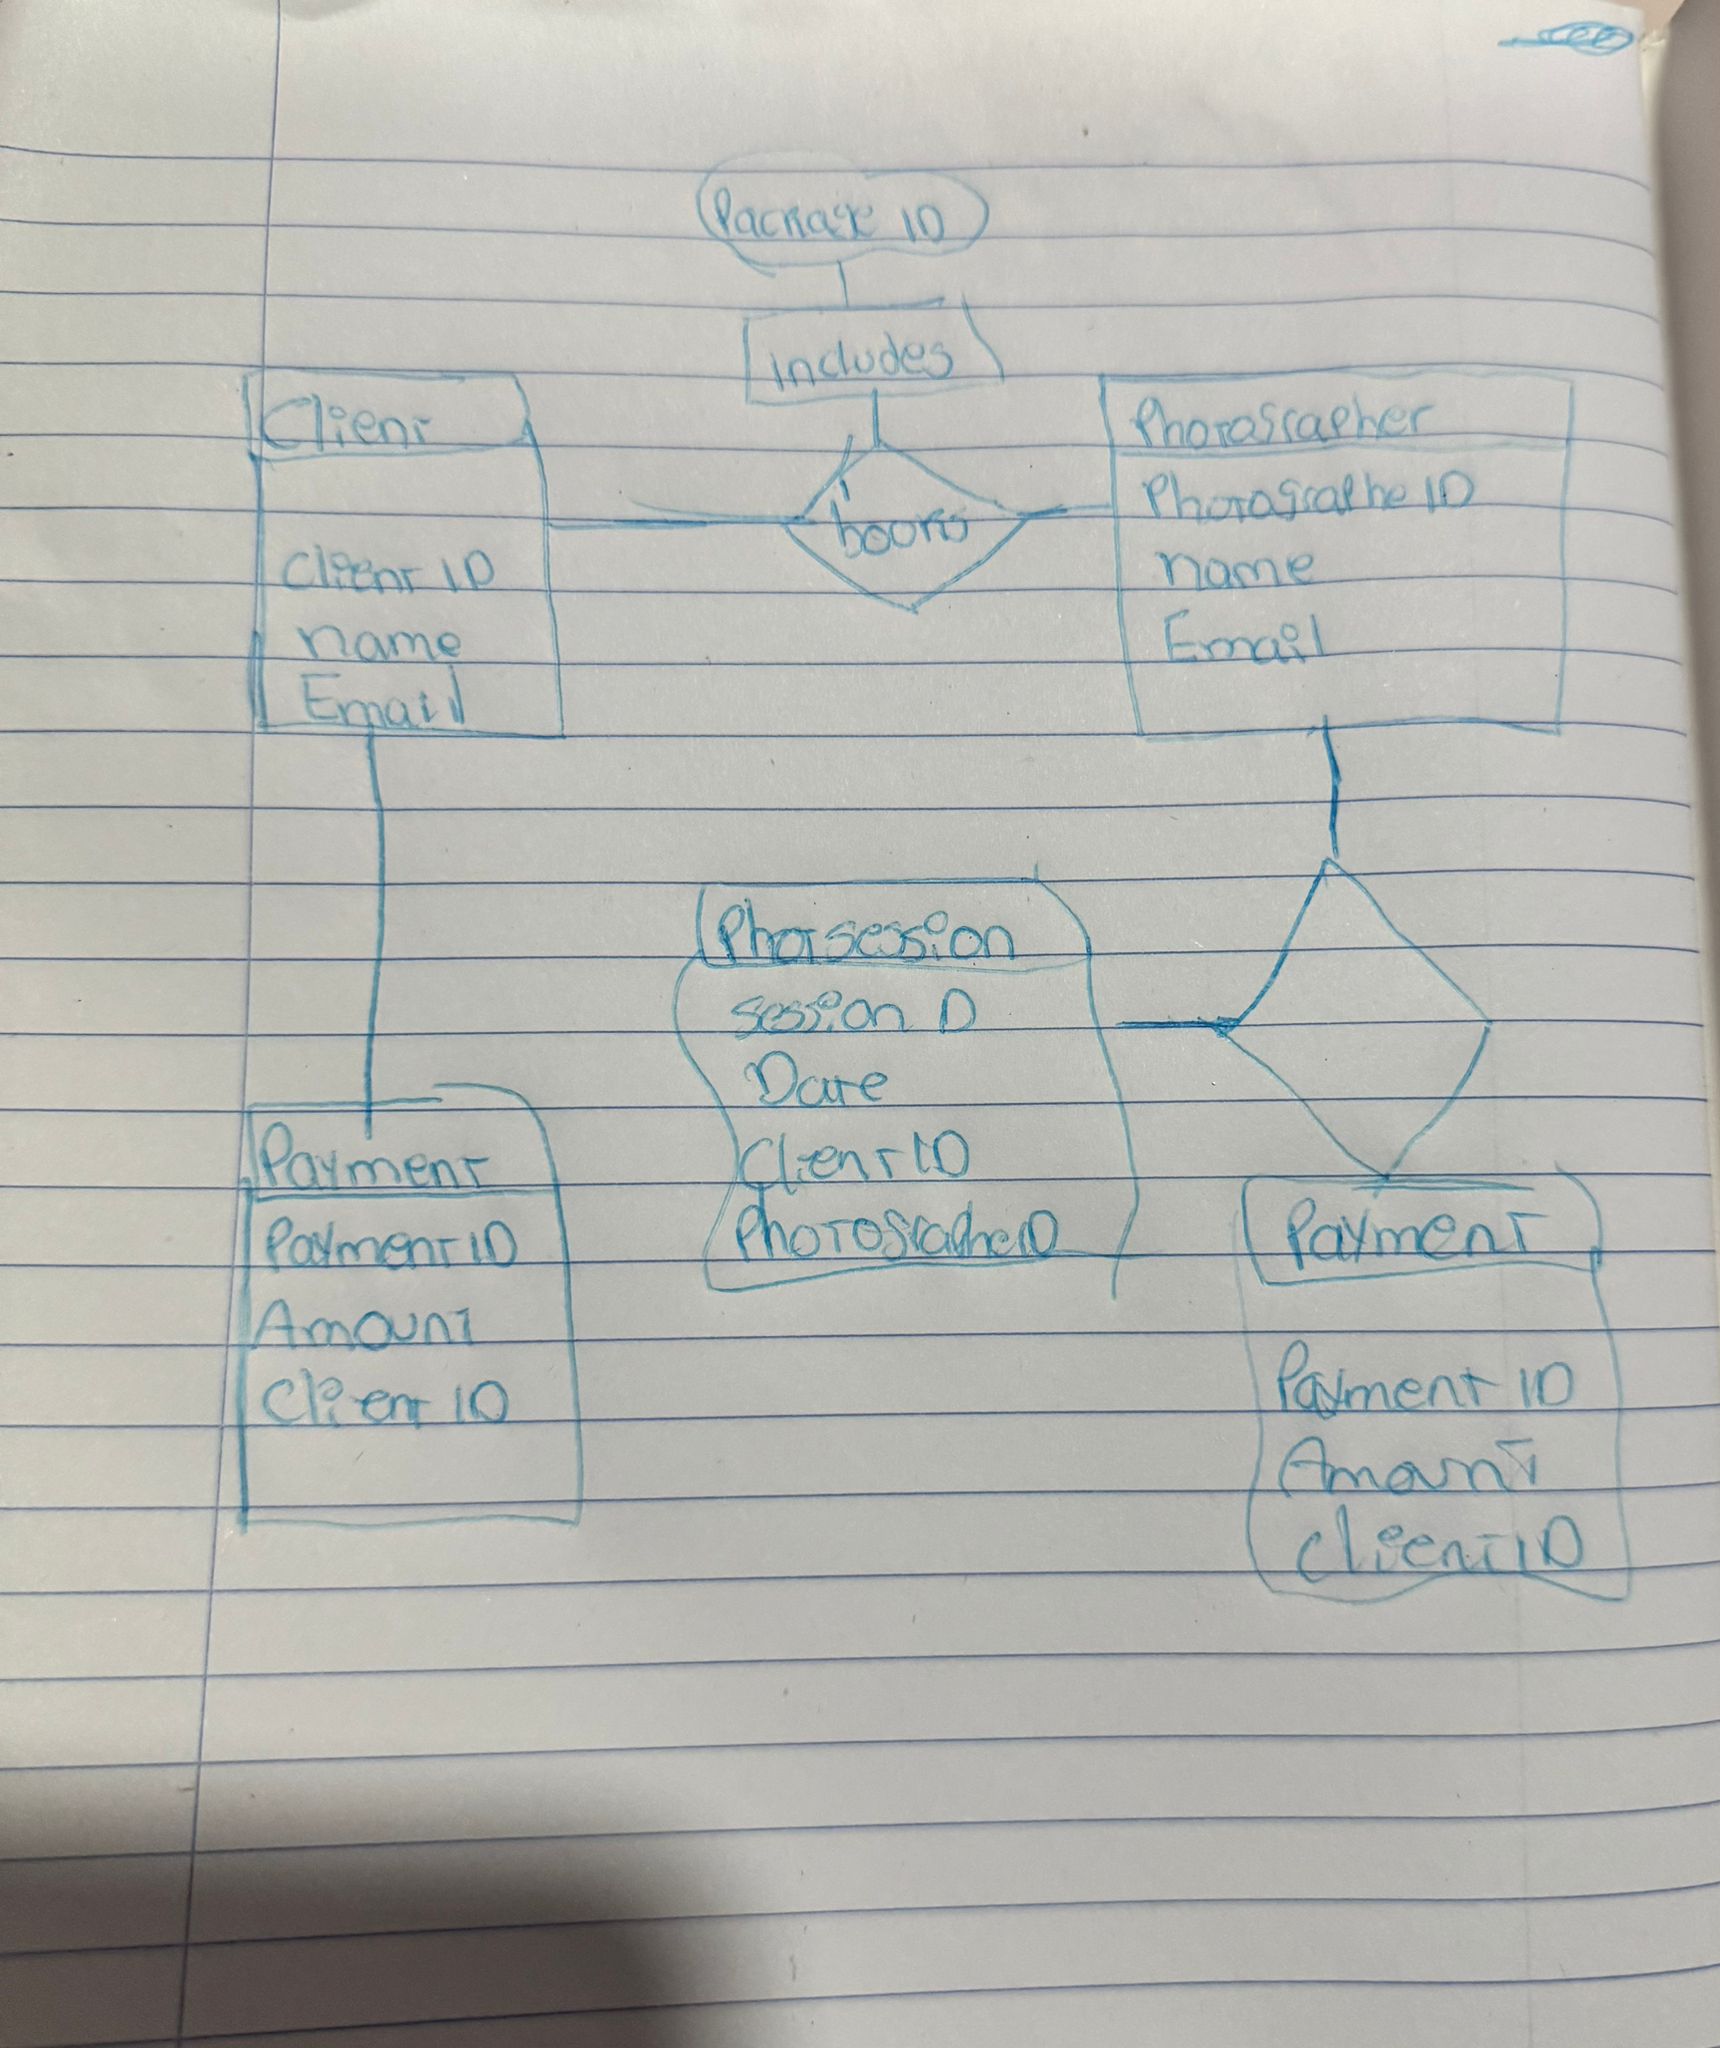 Package ID
includes
Client
Client ID
name
Email
books
Photographer
Photographe ID
name
Email
Photsession
Session D
Date
Client ID
PhotographeID
Payment
Payment ID
Amount
Client ID
Payment
Payment ID
Amount
Client ID